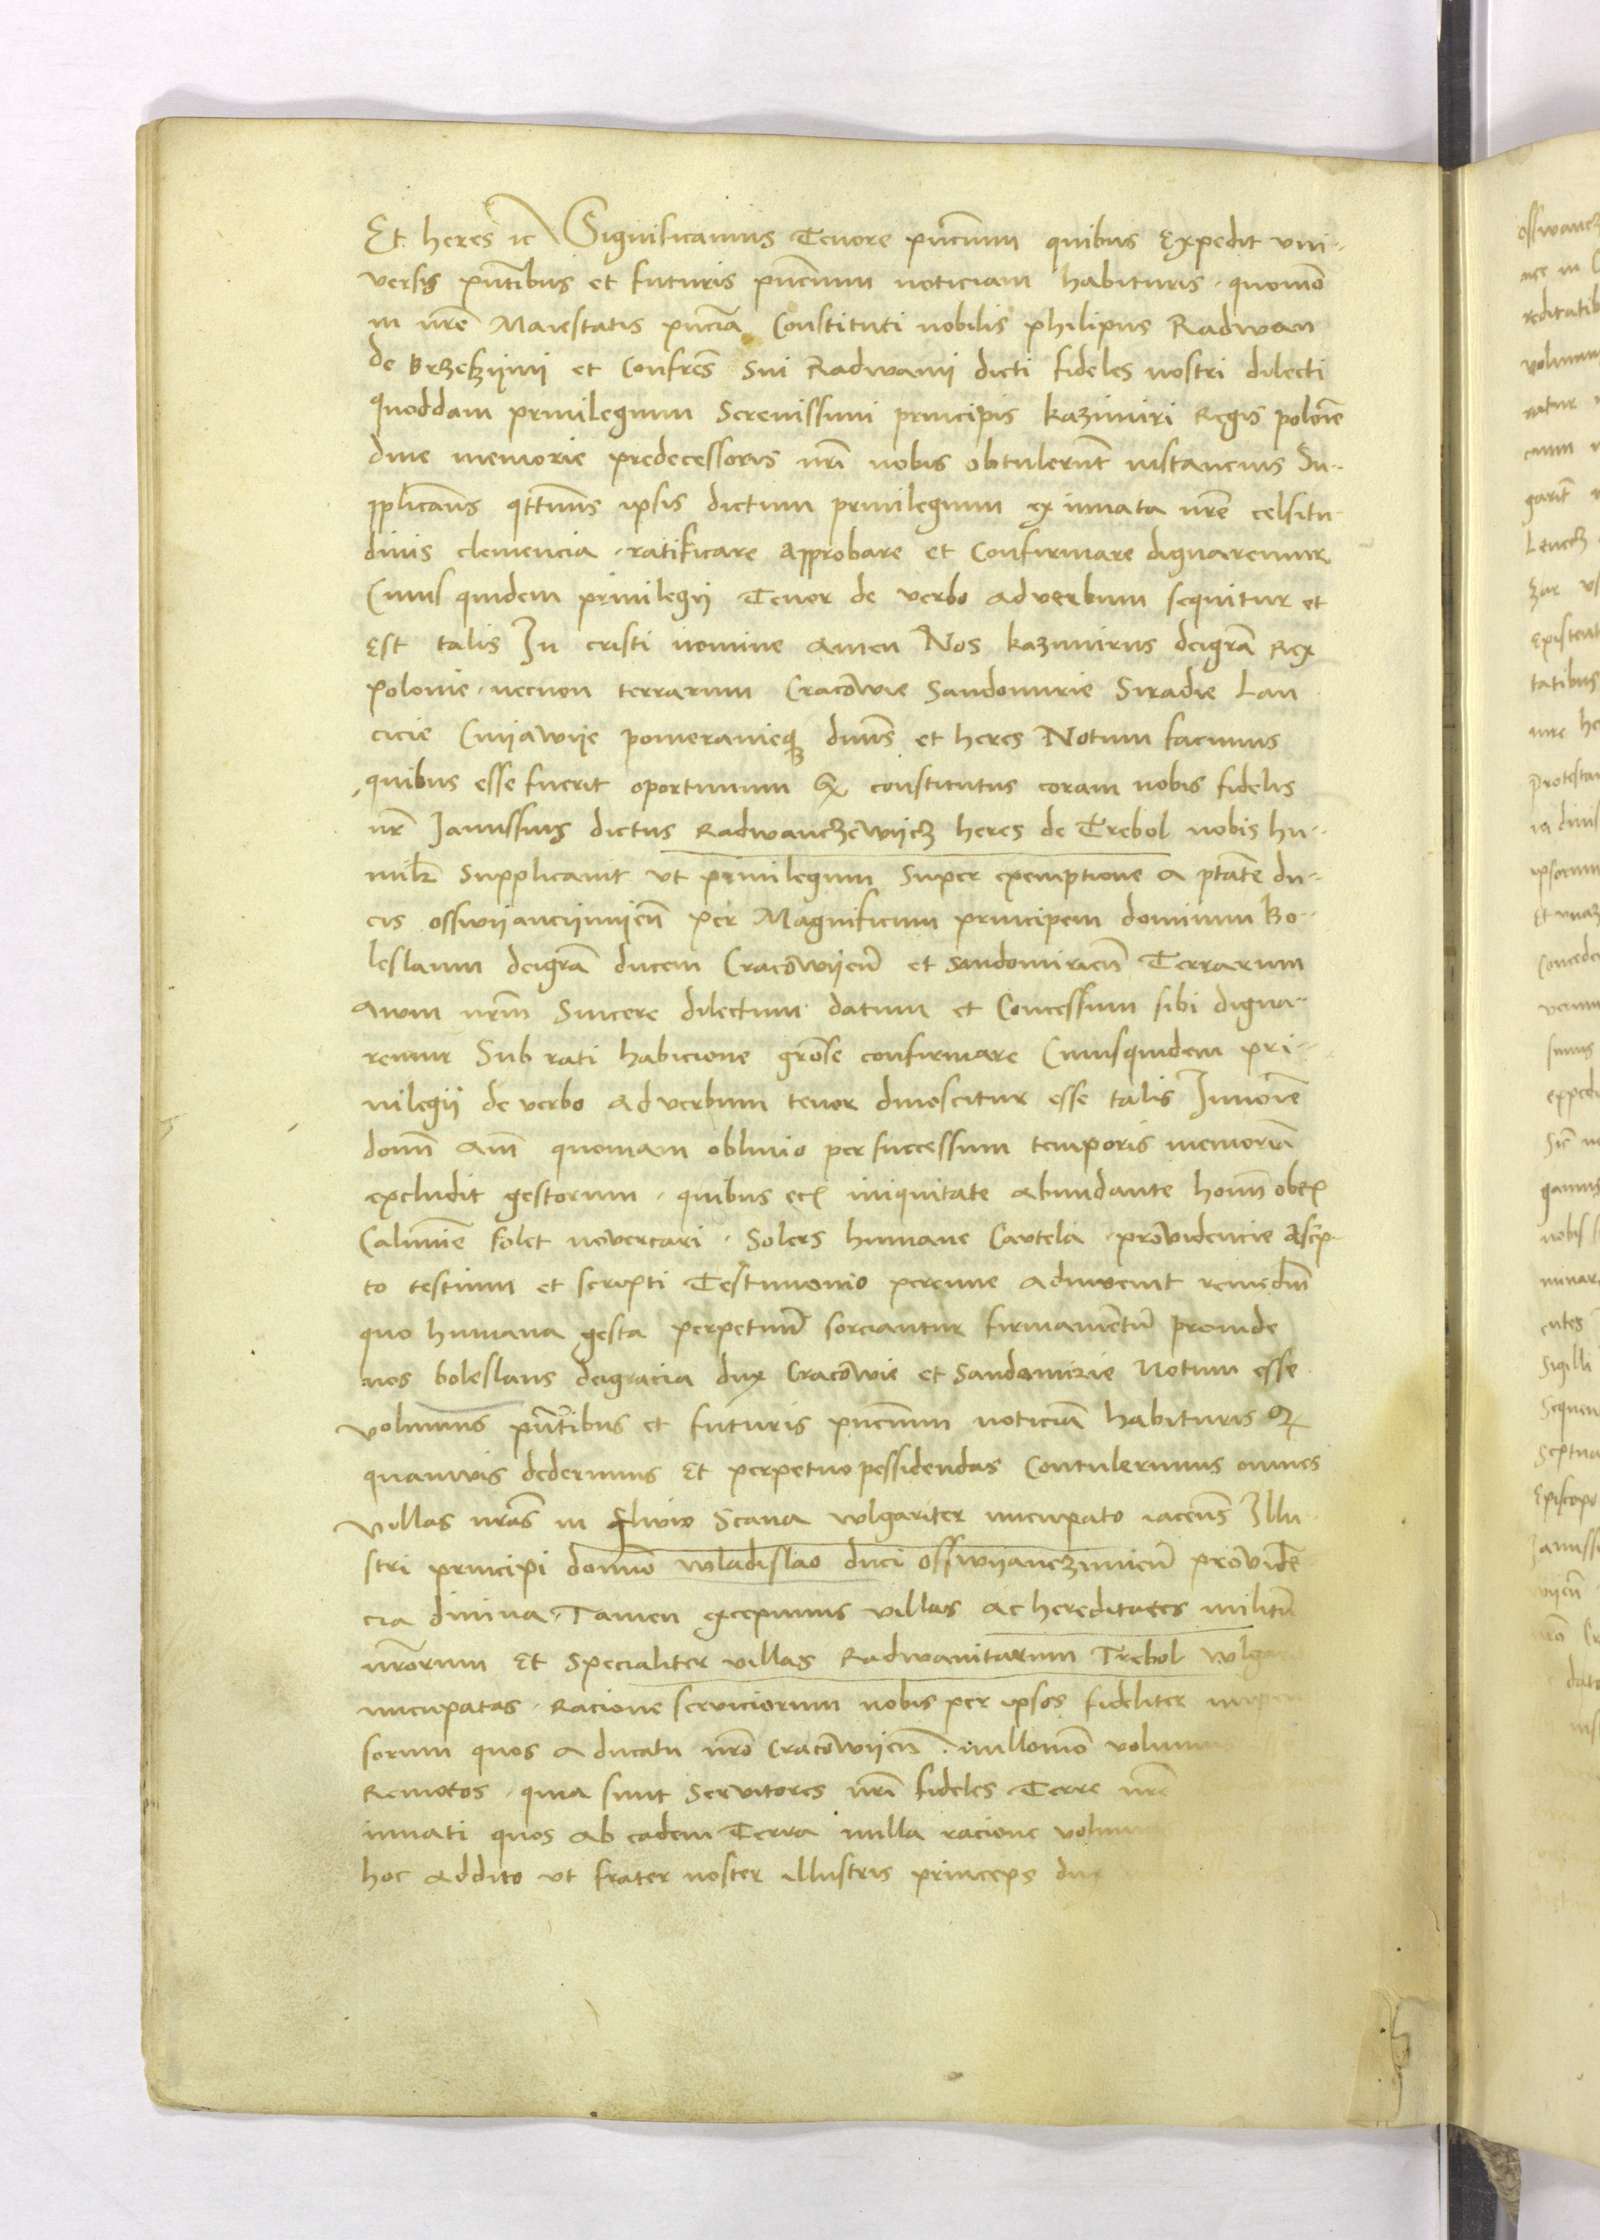 Et heres ꝛc Significamus Tenore pñcium quibus Expedit vni-
versis pñtibus et futuris pñcium noticiam habituris quomo
in nrẽ Maiestatis pñcia Constituti nobilis philipus Radwan
de Brzezijnij et Confres̃ Sui Radwanij dicti fideles nostri dilecti
quoddam priuilegium Serenissimi principis kazimiri Regis polonie
diue memorie predecessoris nrĩ nobis obtulerunt instancius Su-
pplicans̃ qttnus̃ ipsis dictum priuilegium ex innata nrẽ celsitu
dinis clemencia ratificare Approbare et Confirmare dignaremur
Cuius quidem priuilegij Tenor de verbo ad verbum sequitur et
Est talis In cristi nomine amen Nos kazimirus deigrã Rex
Polonie necnon terrarum Cracowie Sandomirie Siradie Lan
cicie Cuijawije pomeranieqз dnũs et heres Notum facimus
quibus esse fuerit oportunum Qꝫ constitutus coram nobis fidelis
nr̃ Janussius dictus Radwanczewijcz heres de Trebol nobis hu-
milꝛ Supplicauit vt priuilegium Super exemptione a ptãte du-
cis osswijancijmieñ per Magnificum principem dominum Bo-
leslaum deigrã ducem Cracowijeñ et sandomirieñ Terrarum
Auum nrm̃ Sincere dilectum datum et Concessum sibi digna-
remur Sub rati habicione grõse confirmare Cuiusquidem pri-
uilegij de verbo ad verbum tenor dinoscitur esse talis Innoĩe
domĩ Am̃ quoniam obliuio per successum temporis memoriã
excludit gestorum quibus ecꝭ iniquitate abundante hoĩm obex
Calumnie solet novercari Solers humane Cautela providencie Ascp-
to testium et scripti Testimonio perenne adinvenit remediũ
quo humana gesta perpetuum̃ sorciantur firmamentũ proinde
nos boleslaus deigracia dux Cracowie et Sandomirie Notum esse
volumus pñtibus et futuris pñcium noticiã habituris Qꝫ
quamvis dederimus Et perpetuo possidendas Contulerimus omnes
villas nras̃ in fluvio Scaua wlgariter nucupato iacens̃ Illu
stri principi domino wladislao duci osswijanczimieñ provide
cia diuina Tamen excepimus villas ac hereditates militũ
nrõrum Et Specialiter villas Radwanitarum Trebol
nucupatas Racione seruiciorum nobis per ipsos fideliter
sorum quos a ducatu nrõ Cracowijeñ nullomõ
Remotos quia sunt Servitores nrĩ fideles Terre nrẽ
innati quos ab eadem Terra nulla racione
hoc addito vt frater noster illustris princeps dux